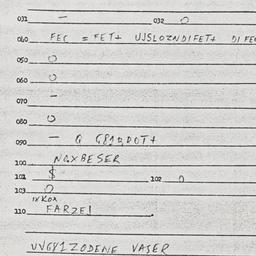 031 — 032 0
040 FEC = FET+ UJSLOZNDIFET+ DIFEC
050 0
060 0
070 —
080 0
090 — Q G81QDOT+
100 NGXBESER
101 $ 102 0
103 0
110 FARZE!
UVG81ZODENE VASER